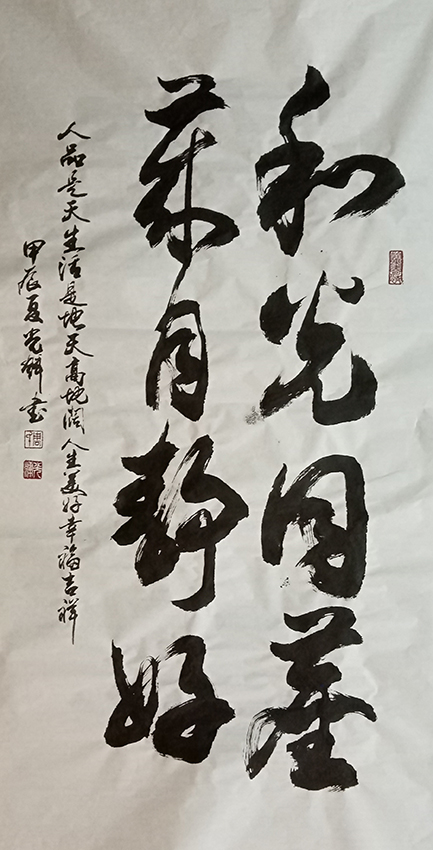 和光同塵
歲月靜好
人品是天生活是地天高地阔人生美好幸福吉祥
甲辰夏光辉书